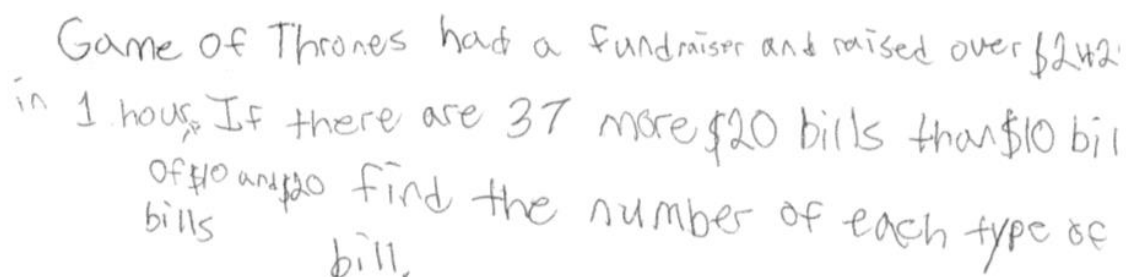 Game of Thrones had a fundraiser and raised over $242
in 1 hour. If there are 37 more $20 bills than $10 bil
of $10 and $20 find the number of each type of
bills
bill.